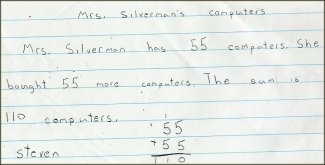 Mrs. Silverman's computers
Mrs. Silverman has 55 computers. She
bought 55 more computers. The sum is
110 computers.
1
55
steven + 55
110